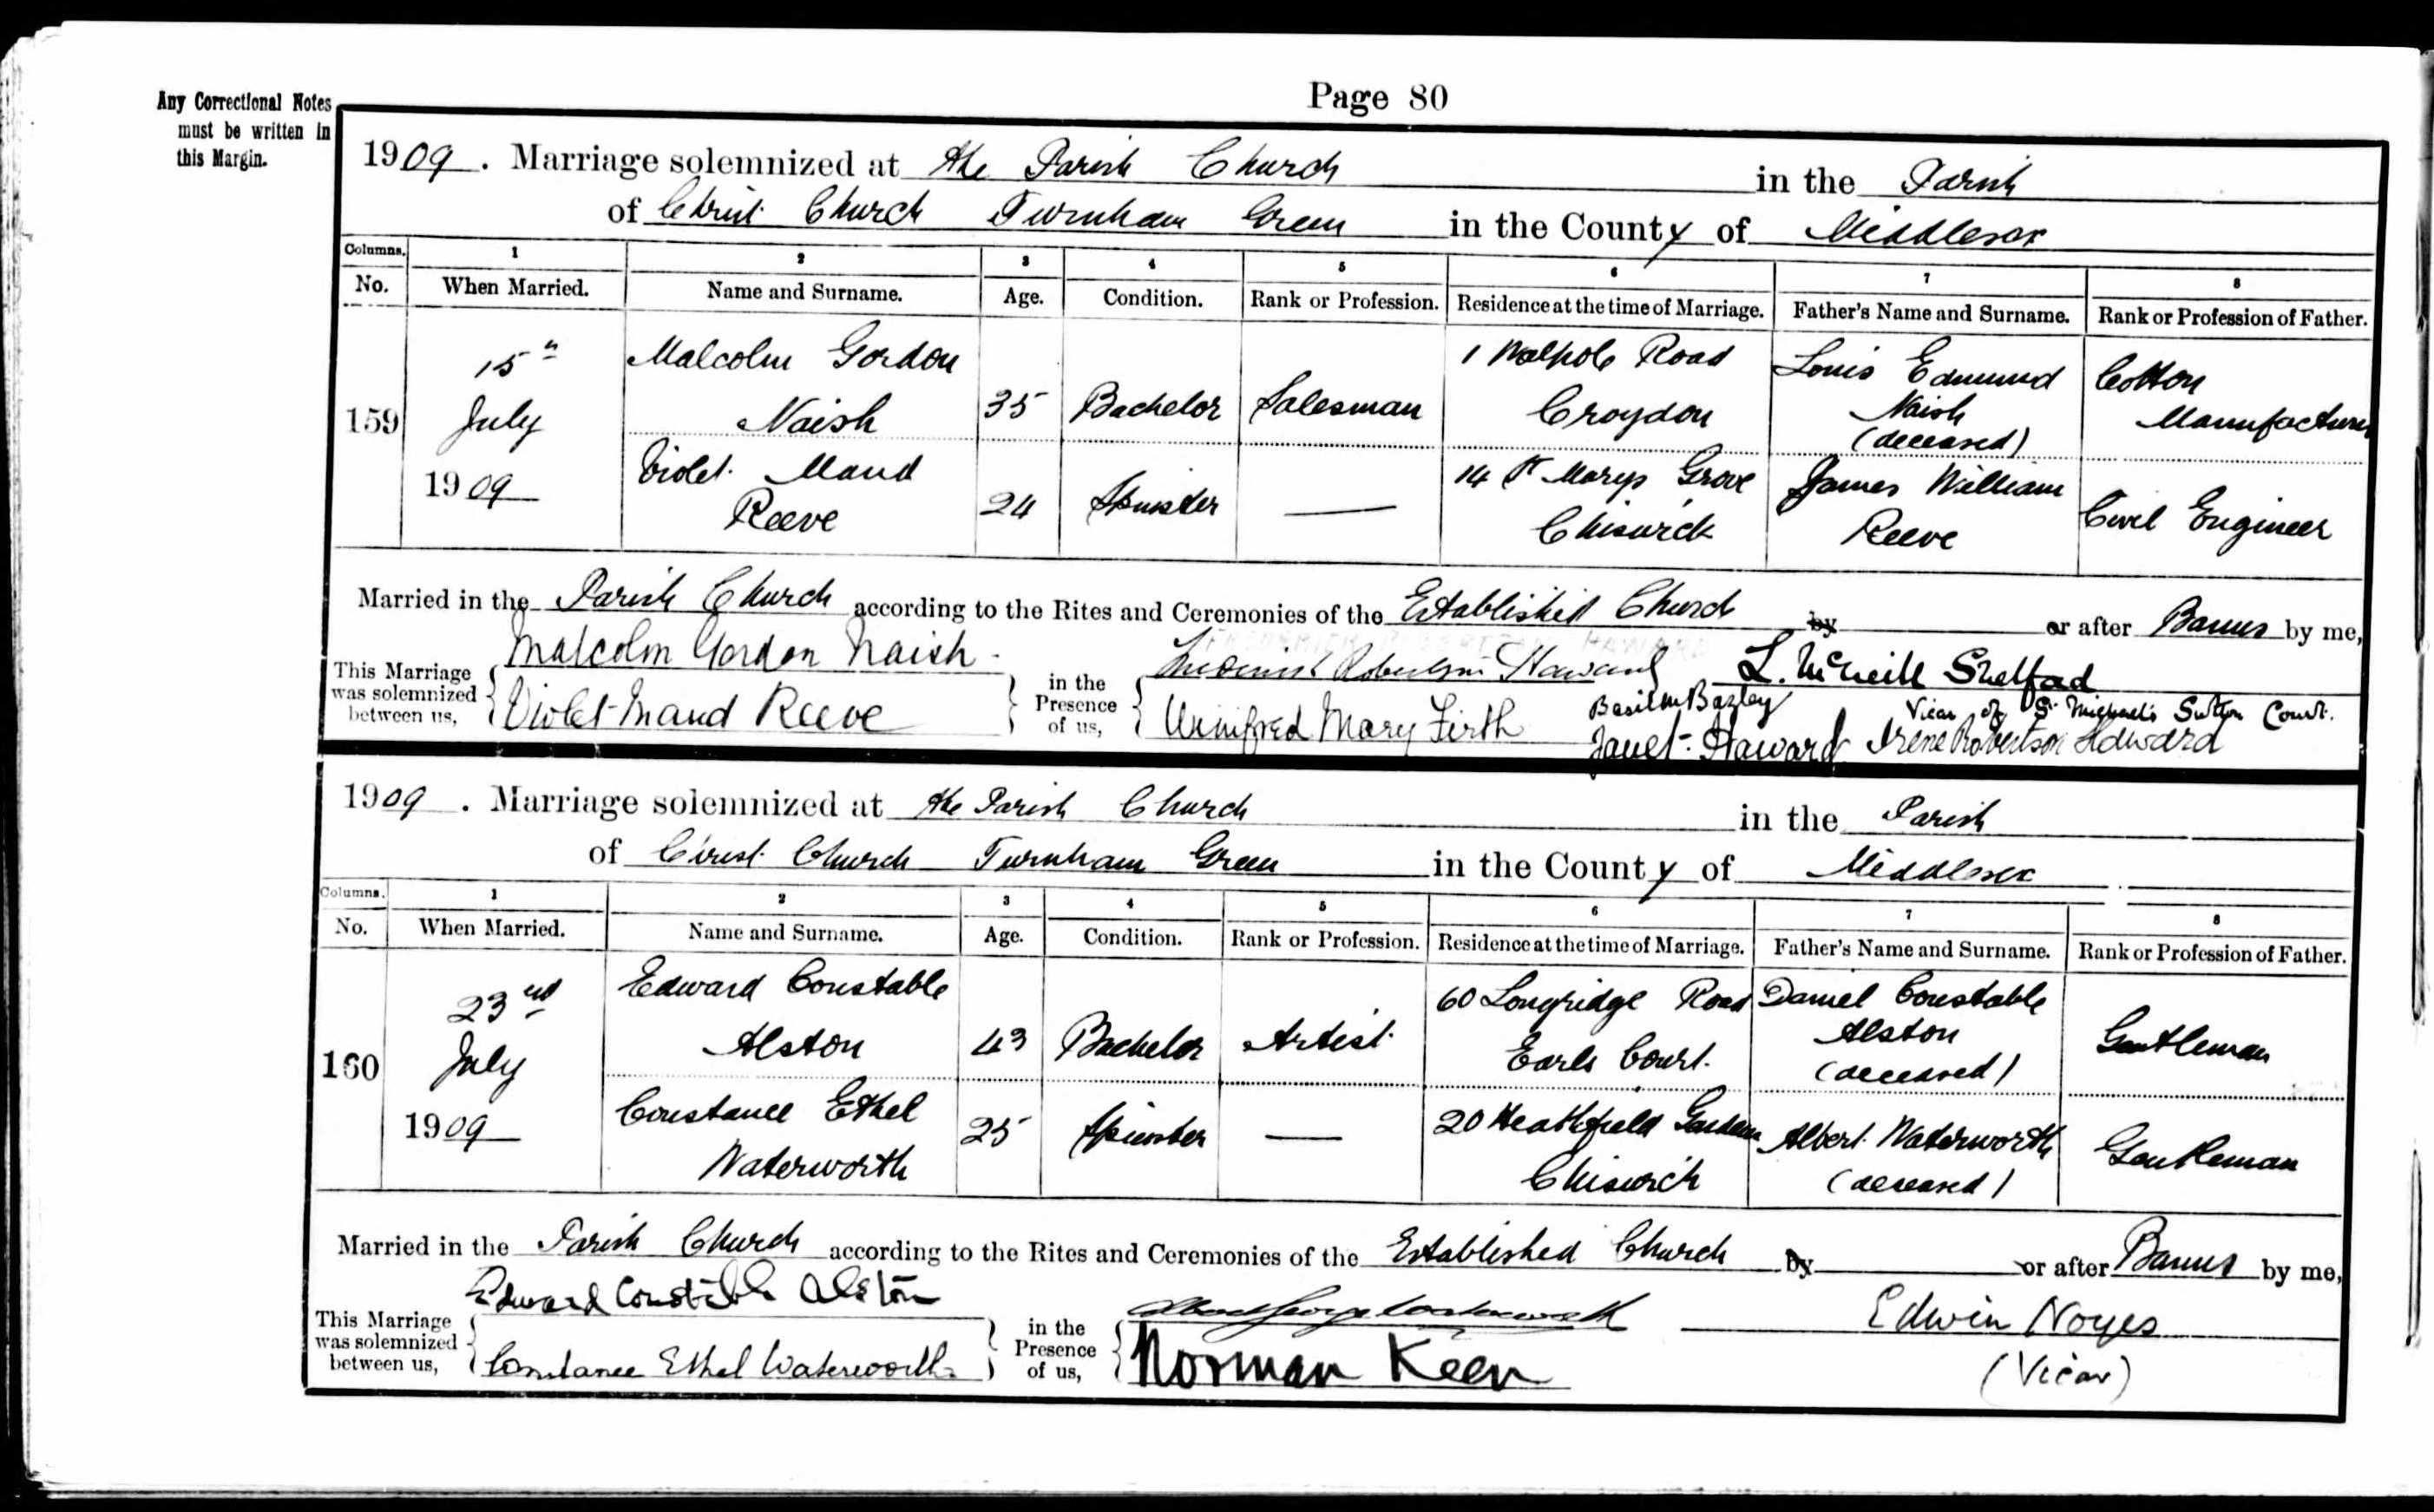 Page 80
Any Correctional Notes
must be written in
this Margin.
1909. Marriage solemnized at the Parish Church in the Parish
of Christ Church Turnham Green in the County of Middlesex
Columns. 1 2 3 4 5 6 7 8
No. When Married. Name and Surname. Age. Condition. Rank or Profession. Residence at the time of Marriage. Father's Name and Surname. Rank or Profession of Father.
159
15th
July
1909
Malcolm Gordon
Naish
35 Bachelor Salesman
1 Walpole Road
Croydon
Louis Edmund
Naish
(deceased)
Cotton
Manufacturer
Violet Maud
Reeve
24 Spinster —
14 St Marys Grove
Chiswick
James William
Reeve
Civil Engineer
Married in the Parish Church according to the Rites and Ceremonies of the Established Church by or after Banns by me,
This Marriage
was solemnized
between us,
Malcolm Gordon Naish
Violet Maud Reeve
in the
Presence
of us,
FREDERICK ROBERTSON HAWARD
Frederick Robertson Haward
Winifred Mary Firth
Basil M Bazley
Janet Haward
Irene Robertson Haward
L. McNeill Shelford
Vicar of St Michael's Sutton Court.
1909. Marriage solemnized at the Parish Church in the Parish
of Christ Church Turnham Green in the County of Middlesex
Columns. 1 2 3 4 5 6 7 8
No. When Married. Name and Surname. Age. Condition. Rank or Profession. Residence at the time of Marriage. Father's Name and Surname. Rank or Profession of Father.
160
23rd
July
1909
Edward Constable
Alston
43 Bachelor Artist
60 Longridge Road
Earls Court.
Daniel Constable
Alston
(deceased)
Gentleman
Constance Ethel
Waterworth
25 Spinster —
20 Heathfield Gardens
Chiswick
Albert Waterworth
(deceased)
Gentleman
Married in the Parish Church according to the Rites and Ceremonies of the Established Church by or after Banns by me,
This Marriage
was solemnized
between us,
Edward Constable Alston
Constance Ethel Waterworth
in the
Presence
of us,
George Waterworth
Norman Keen
Edwin Noyes
(Vicar)